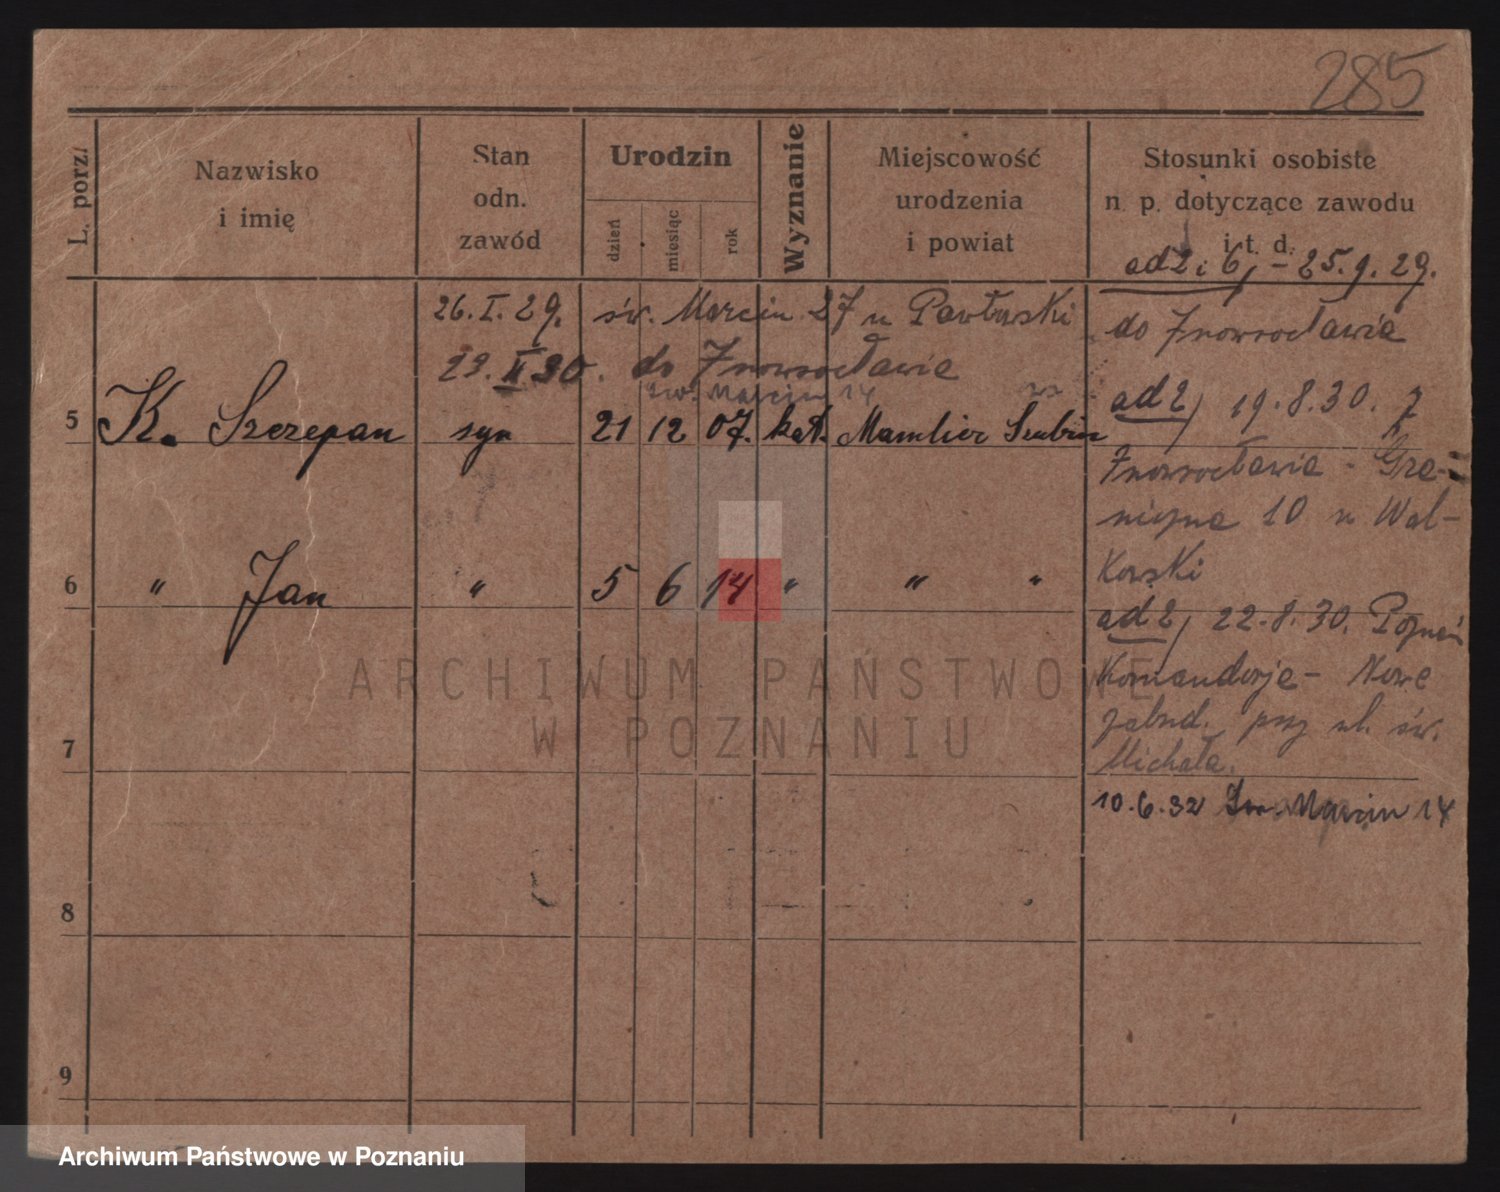 285
L. porz.
Nazwisko
i imię
Stan
odn.
zawód
Urodzin
dzień
miesiąc
rok
Wyznanie
Miejscowość
urodzenia
i powiat
Stosunki osobiste
n. p. dotyczące zawodu
i t. d.
ad 2 i 6, - 25.9.29.
do Inowrocławia
26.I.29. św. Marcin 27 u Pawłuski
23.II.30. do Inowrocławia
św. Marcin 14
5 K. Szczepan syn 21 12 07. kat. Mamlicz Szubin
ad 2, 19.8.30. z
Inowrocławia - Gra-
niczna 10 u Wal-
kowski
6 " Jan " 5 6 14 " " "
ad 2, 22.8.30. Poznań
Komandorje - Nowe
zabud. przy ul. św.
Michała.
10.6.32 Św. Marcin 14
7
8
9
ARCHIWUM PAŃSTWOWE
W POZNANIU
Archiwum Państwowe w Poznaniu